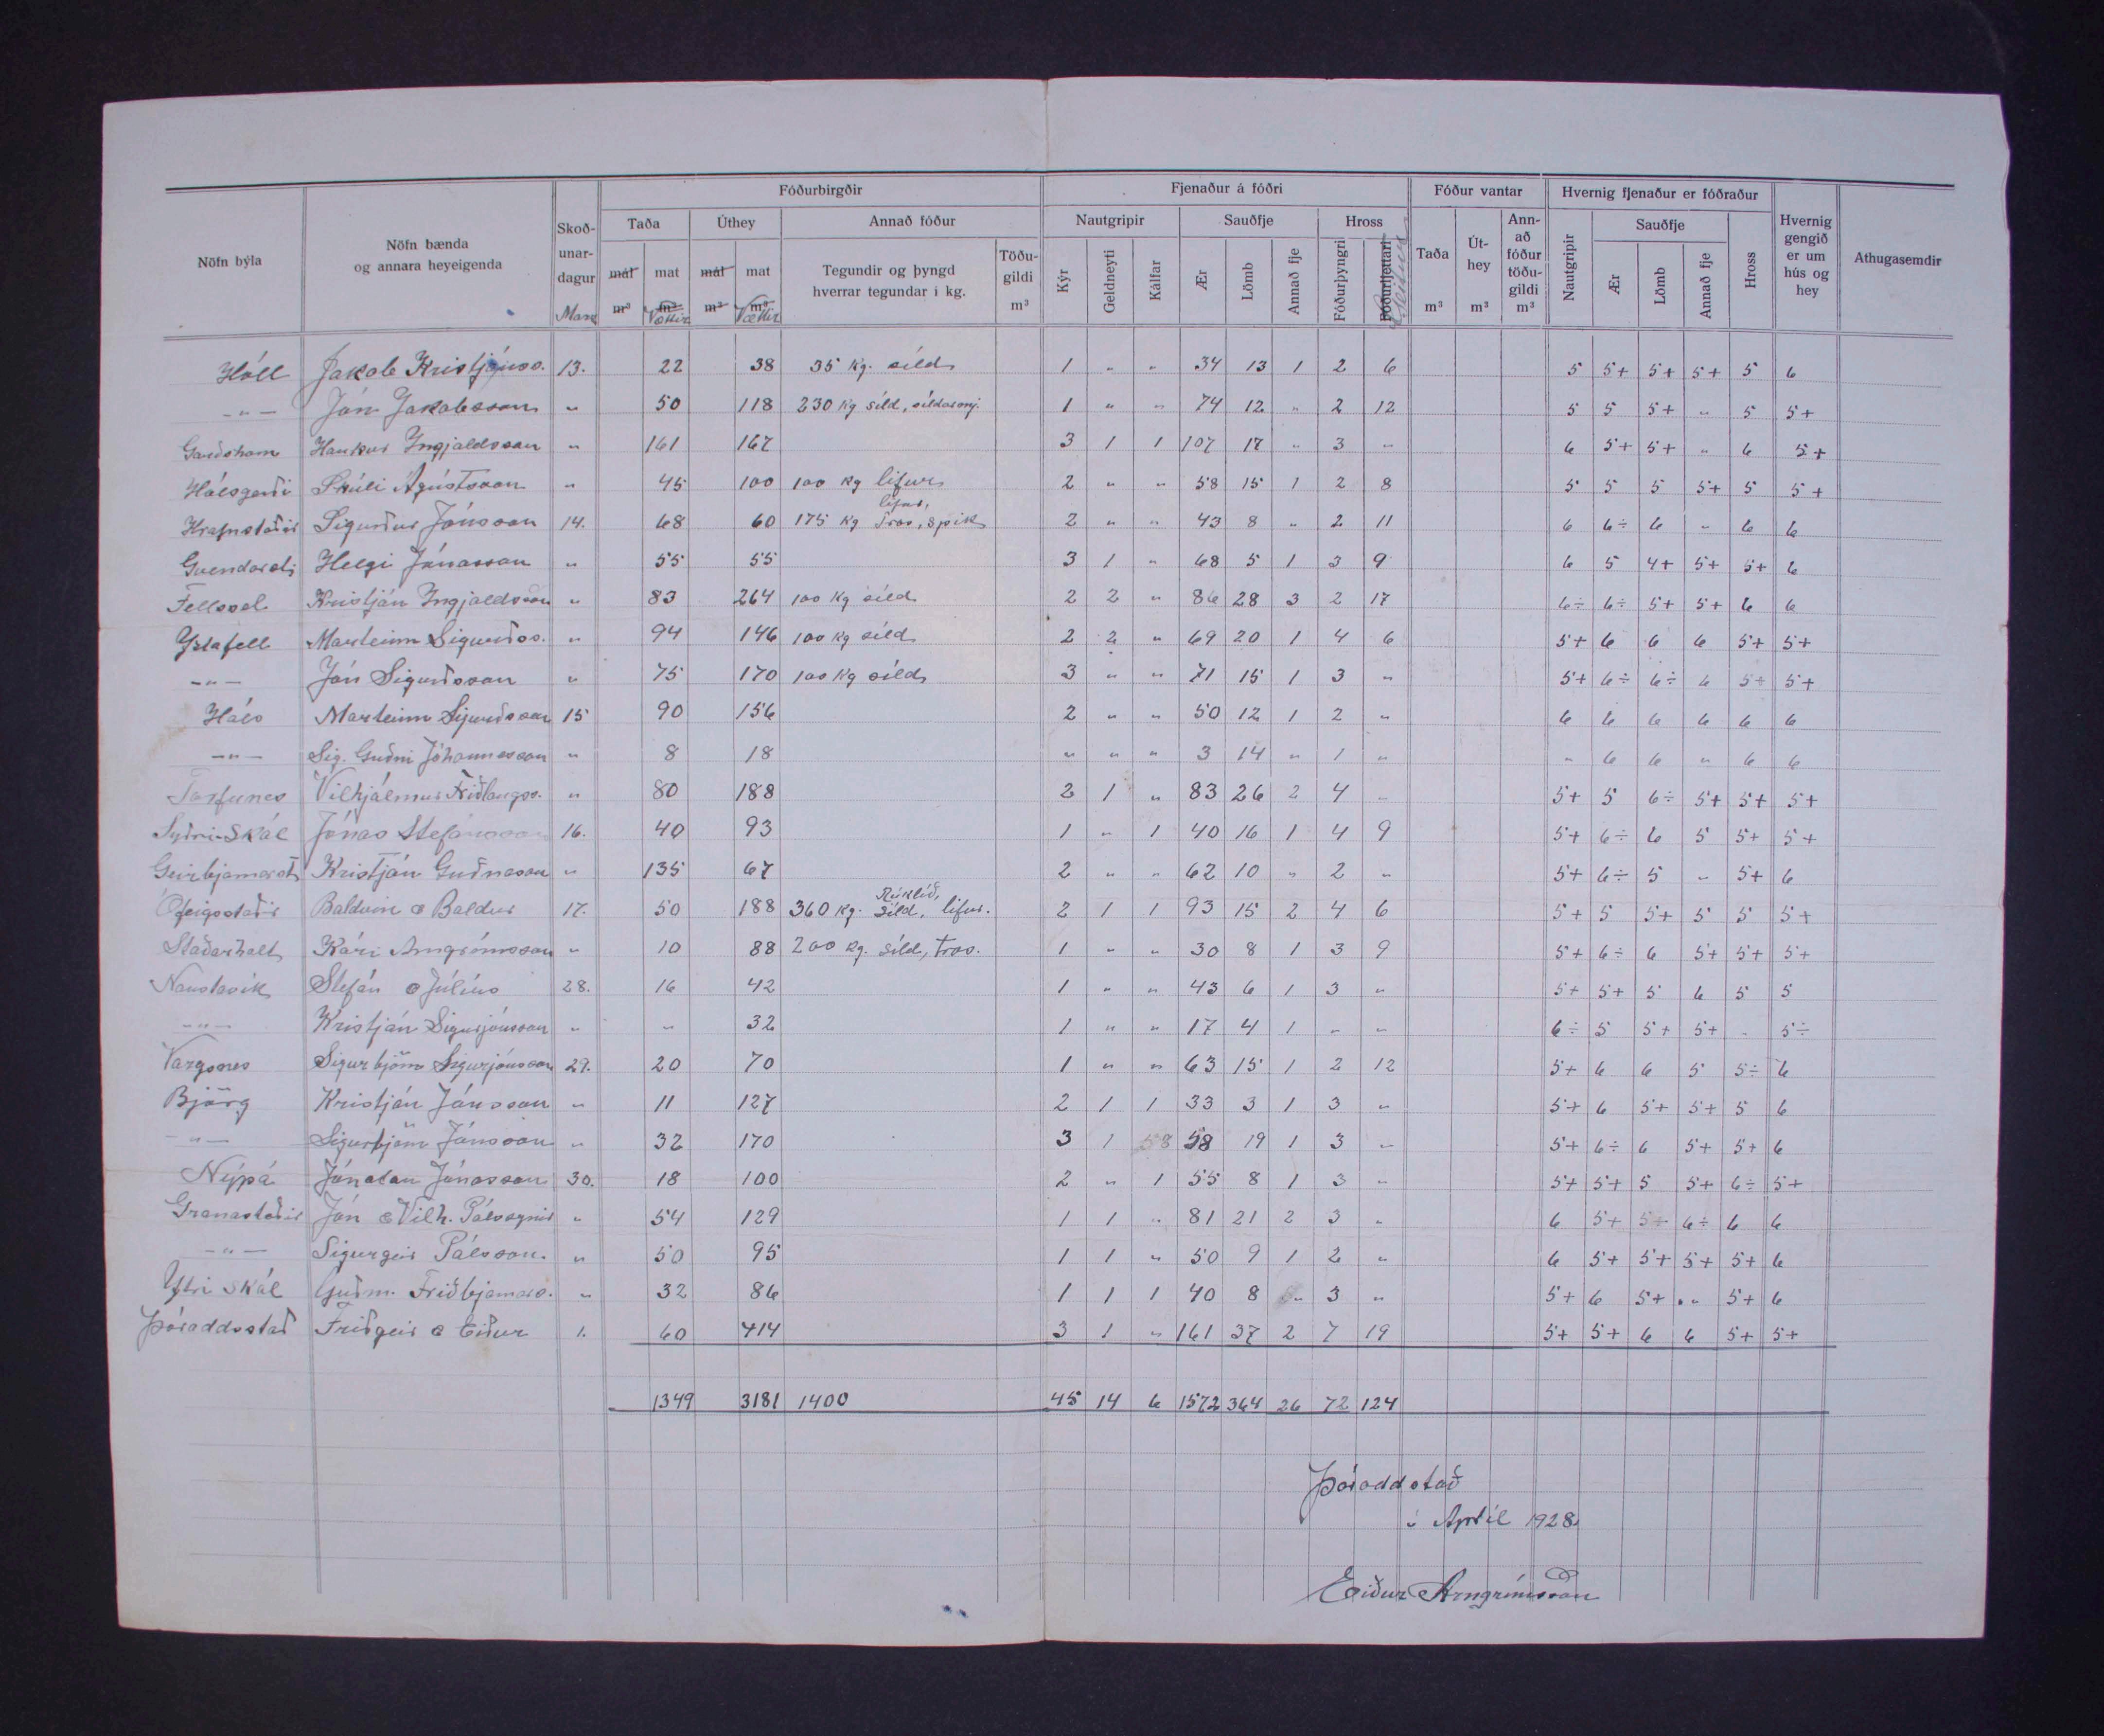 Fóðurbirgðir Fjenaður á fóðri Fóður vantar Hvernig fjenaður er fóðraður
Nöfn býla Nöfn bænda og annara heyeigenda Skoð-unar-dagur Mars Taða Úthey Annað fóður Nautgripir Sauðfje Hross Taða Út-hey Ann-að fóður töðu-gildi Nautgripir Sauðfje Hross Hvernig gengið er um hús og hey Athugasemdir
mát mat mát mat Tegundir og þyngd hverrar tegundar í kg. Töðu-gildi Kýr Geldneyti Kálfar Ær Lömb Annað fje Fóðurþyngri Fóðurljettari Ær Lömb Annað fje
m³ m³ Vættir m³ m³ Vættir m³ m³ m³ m³
Hóll Jakob Kristjánss. 13. 22 38 35 kg. síld 1 " " 34 13 1 2 6 5 5+ 5+ 5+ 5 6
-"- Jón Jakobsson " 50 118 230 kg síld, síldarmj. 1 " " 74 12 " 2 12 5 5 5+ " 5 5+
Garðshorn Haukur Ingjaldsson " 161 167 3 1 1 107 17 " 3 " 6 5+ 5+ " 6 5+
Hálsgerði Skúli Ágústsson " 45 100 100 kg lifur 2 " " 58 15 1 2 8 5 5 5 5+ 5 5+
Hrafnstaðir Sigurður Jónsson 14. 68 60 175 kg lifur, Tros, spik 2 " " 43 8 " 2 11 6 6÷ 6 " 6 6
Guendarst. Helgi Jónasson " 55 55 3 1 " 68 5 1 3 9 6 5 4+ 5+ 5+ 6
Fellssel Kristján Ingjaldsson " 83 264 100 kg síld 2 2 " 86 28 3 2 17 6÷ 6÷ 5+ 5+ 6 6
Yztafell Marteinn Sigurðss. " 94 146 100 kg síld 2 2 " 69 20 1 4 6 5+ 6 6 6 5+ 5+
-"- Jón Sigurðsson " 75 170 100 kg síld 3 " " 71 15 1 3 " 5+ 6÷ 6÷ 6 5+ 5+
Háls Marteinn Sigurðsson 15 90 156 2 " " 50 12 1 2 " 6 6 6 6 6 6
-"- Sig. Guðni Jóhannesson " 8 18 " " " 3 14 " 1 " " 6 6 " 6 6
Torfunes Vilhjálmur Friðlaugss. " 80 188 2 1 " 83 26 2 4 " 5+ 5 6÷ 5+ 5+ 5+
Syðri-Skál Jónas Stefánsson 16. 40 93 1 " 1 40 16 1 4 9 5+ 6÷ 6 5 5+ 5+
Geirbjarnarst. Kristján Guðnason " 135 67 2 " " 62 10 " 2 " 5+ 6÷ 5 " 5+ 6
Ófeigsstaðir Baldvin & Baldur 17. 50 188 360 kg. Rúklíð, Síld, lifur. 2 1 1 93 15 2 4 6 5+ 5 5+ 5 5 5+
Staðarholt Kári Arngrímsson " 10 88 200 kg. síld, tros. 1 " " 30 8 1 3 9 5+ 6÷ 6 5+ 5+ 5+
Naustavík Stefán & Júlíus 28. 16 42 1 " " 43 6 1 3 " 5+ 5+ 5 6 5 5
-"- Kristján Sigurjónsson " " 32 1 " " 17 4 1 " " 6÷ 5 5+ 5+ " 5÷
Vargsnes Sigurbjörn Sigurjónsson 29. 20 70 1 " " 63 15 1 2 12 5+ 6 6 5 5÷ 6
Björg Kristján Jónsson " 11 127 2 1 1 33 3 1 3 " 5+ 6 5+ 5+ 5 6
-"- Sigurbjörn Jónsson " 32 170 3 1 58 19 1 3 " 5+ 6÷ 6 5+ 5+ 6
Nýpá Jónatan Jónasson 30. 18 100 2 " 1 55 8 1 3 " 5+ 5+ 5 5+ 6÷ 5+
Granastaðir Jón & Vilh. Pálssynir " 54 129 1 1 " 81 21 2 3 " 6 5+ 5+ 6÷ 6 6
-"- Sigurgeir Pálsson. " 50 95 1 1 " 50 9 1 2 " 6 5+ 5+ 5+ 5+ 6
Ytri Skál Guðm. Friðbjarnars. " 32 86 1 1 1 40 8 " 3 " 5+ 6 5+ " 5+ 6
Þóroddsstað Friðgeir & Eiður 1. 60 414 3 1 " 161 37 2 7 19 5+ 5+ 6 6 5+ 5+
1349 3181 1400 45 14 6 1572 364 26 72 124
Þóroddstað
í Apríl 1928
Eiður Arngrímsson